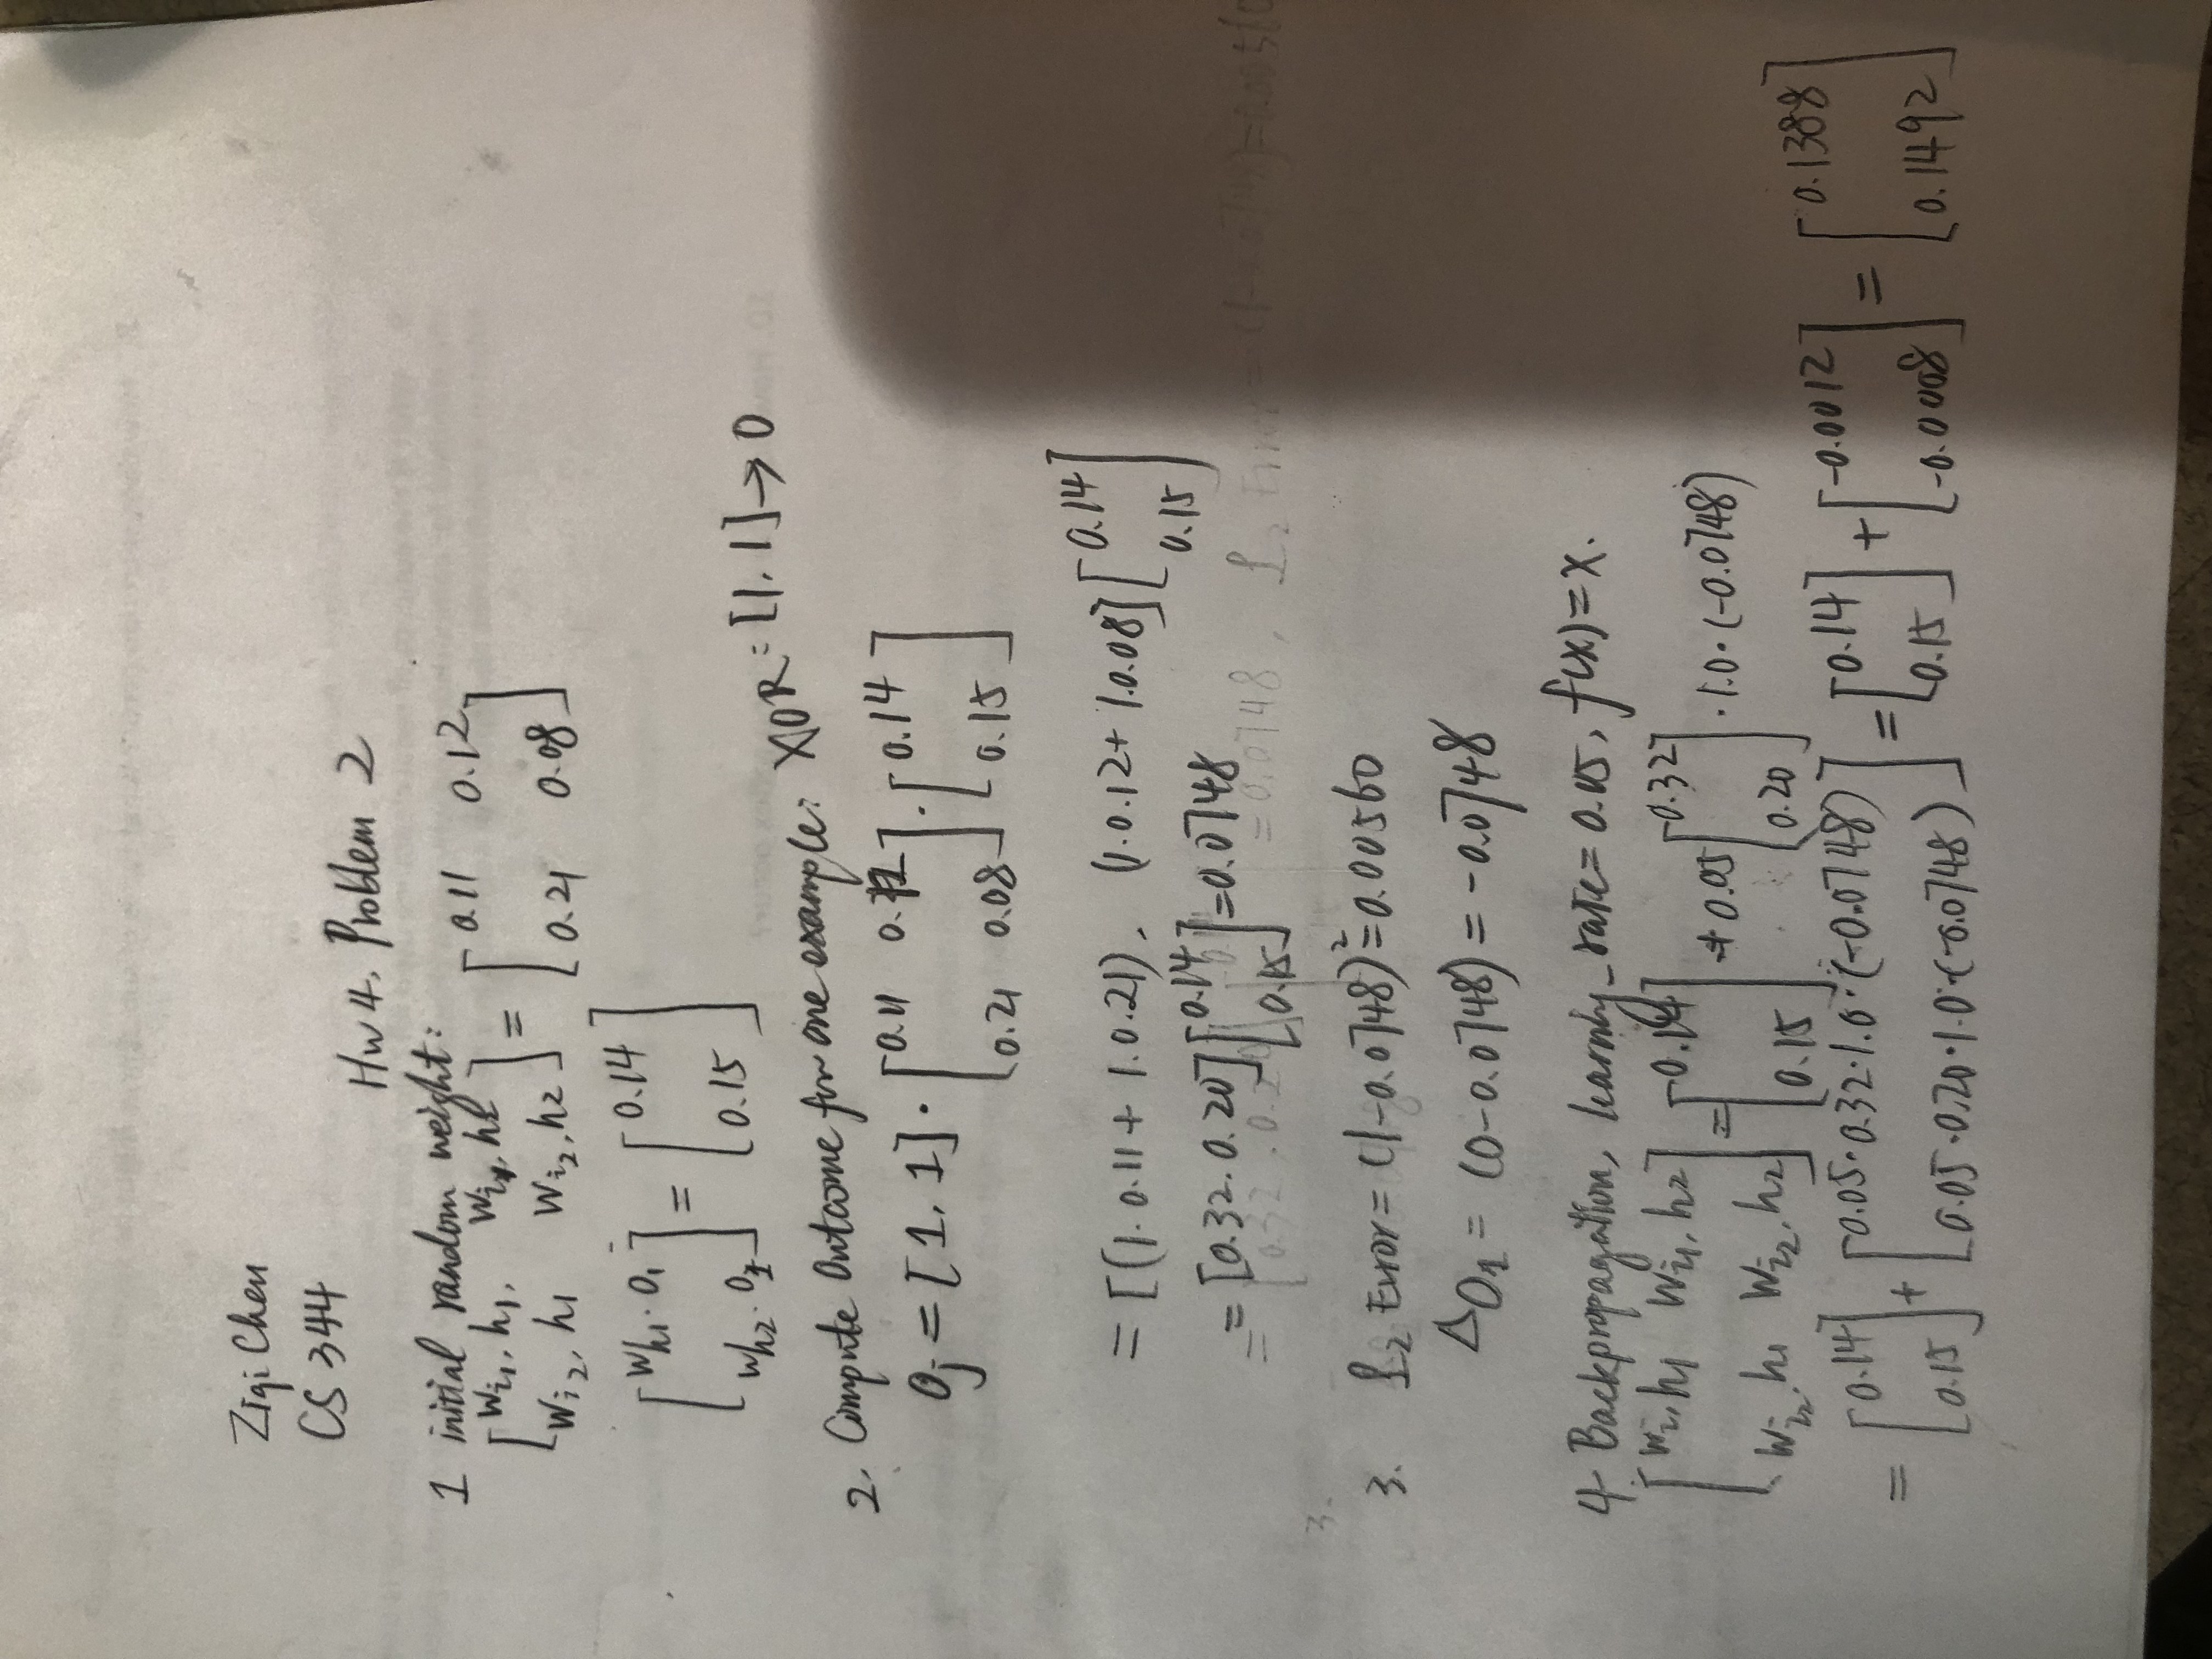 Ziqi Chen
CS 344
Hw 4, Problem 2
1 initial random weight:
[Wi1, h1, Wi1, h2
Wi2, h1 Wi2, h2] = [0.11 0.12
0.21 0.08]
[Wh1. O1
Wh2. O1] = [0.14
0.15]
2. Compute Outcome for one example: XOR: [1, 1] → 0
Oj = [1, 1] · [0.11 0.12
0.21 0.08] · [0.14
0.15]
= [(1·0.11 + 1·0.21), (1·0.12 + 1·0.08] [0.14
0.15]
= [0.32. 0.20] [0.14
0.15] = 0.0748
= 0.0748, L2 Error
3.
3. L2 Error = (1-0.0748)² = 0.00560
Δ O1 = (0-0.0748) = -0.0748
4 Backpropagation, learning_rate = 0.05, f(x) = x.
[Wi, h1 Wi1, h2
Wi2, h1 Wi2, h2] = [0.14
0.15] + 0.05 [0.32
0.20] · 1.0 · (-0.0748)
= [0.14
0.15] + [0.05·0.32·1.0·(-0.0748)
0.05·0.20·1.0·(-0.0748)] = [0.14
0.15] + [-0.0012
-0.0008] = [0.1388
0.1492]